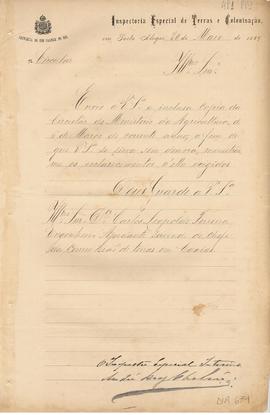 Inspectoria Especial de Terras e Colonisação,
em Porto Alegre, 20 de Maio de 1889
Circular
Illmo Snr.
Envio a V. Sa a inclusa copia da
Circular do Ministerio da Agricultura, de
de Março do corrente anno, a fim de
que V. Sa se sirva, sem demora,
me os esclarecimentos n'ella exigidos
Deus Guarde a V. Sa
Illmo Snr. Dr Carlos Leopoldo
Engenheiro Ajudante servindo de Chefe
da Commissão de terras em Caxias
O Inspector Especial Interino